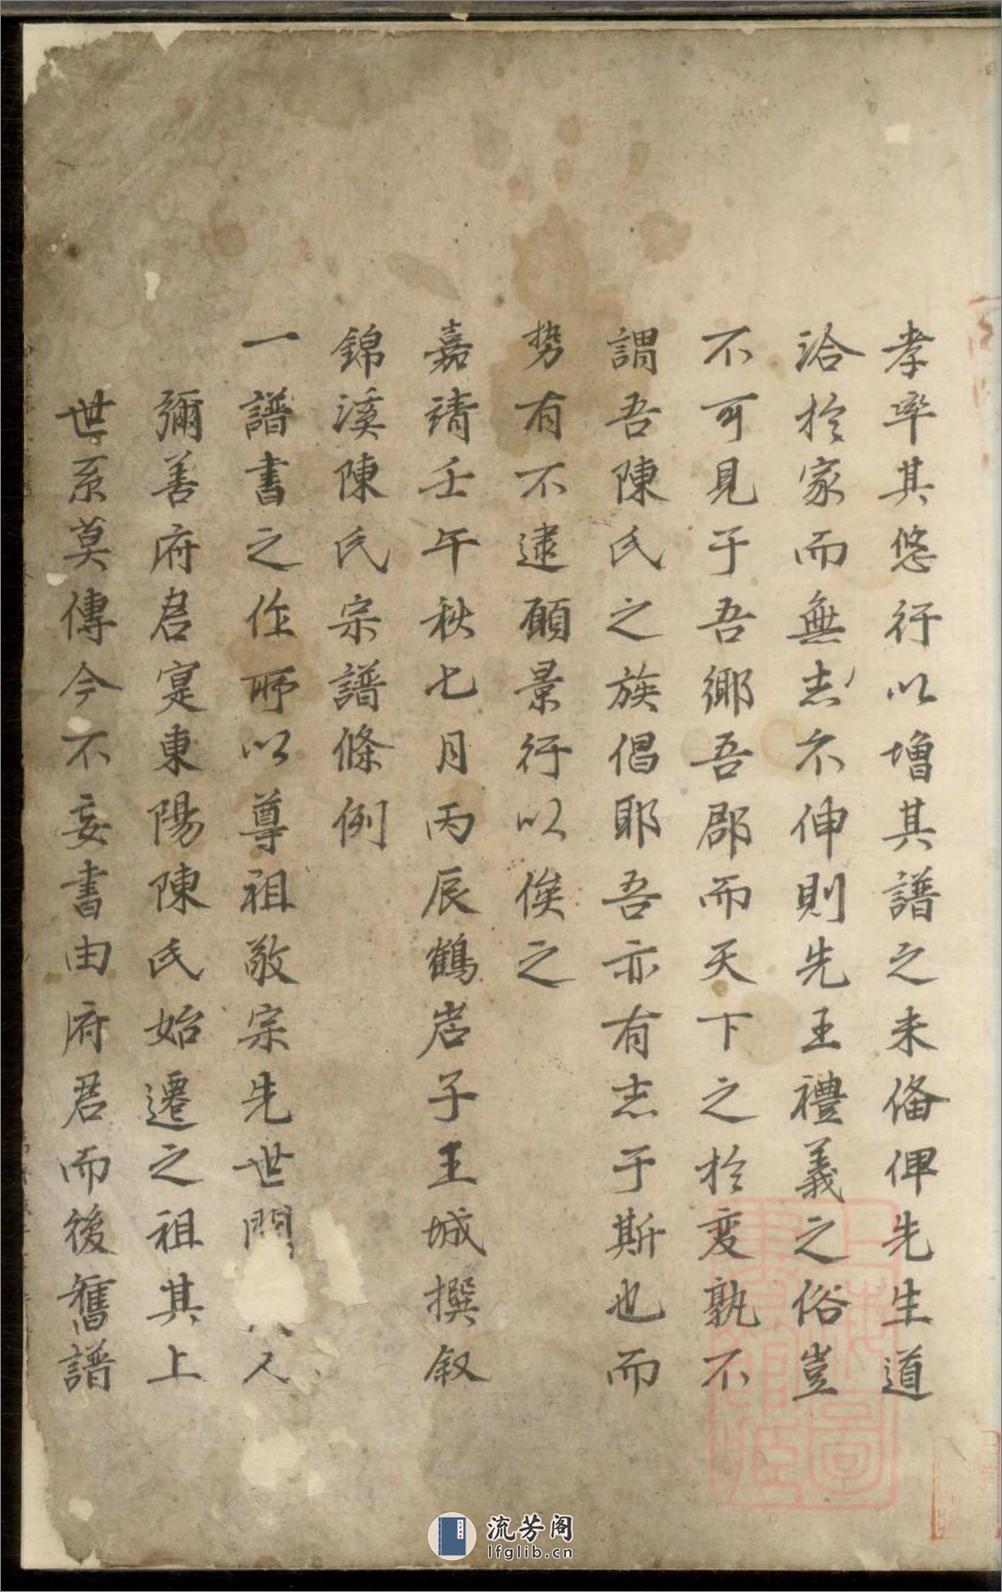 孝率其悠行以增其譜之未俻俾先生道
洽於家而無志不伸則先王禮義之俗豈
不可見于吾鄉吾郡而天下之於变孰不
謂吾陳氏之族倡耶吾亦有志于斯也而
势有不逮頋景行以俟之
嘉靖壬午秋七月丙辰鶴岩子王城撰叙
錦溪陳氏宗譜條例
一譜書之作所以尊祖敬宗先世間人
彌善府君寔東陽陳氏始遷之祖其上
世系莫傳今不妄書由府君而後舊譜
流芳阁
lfglib.cn